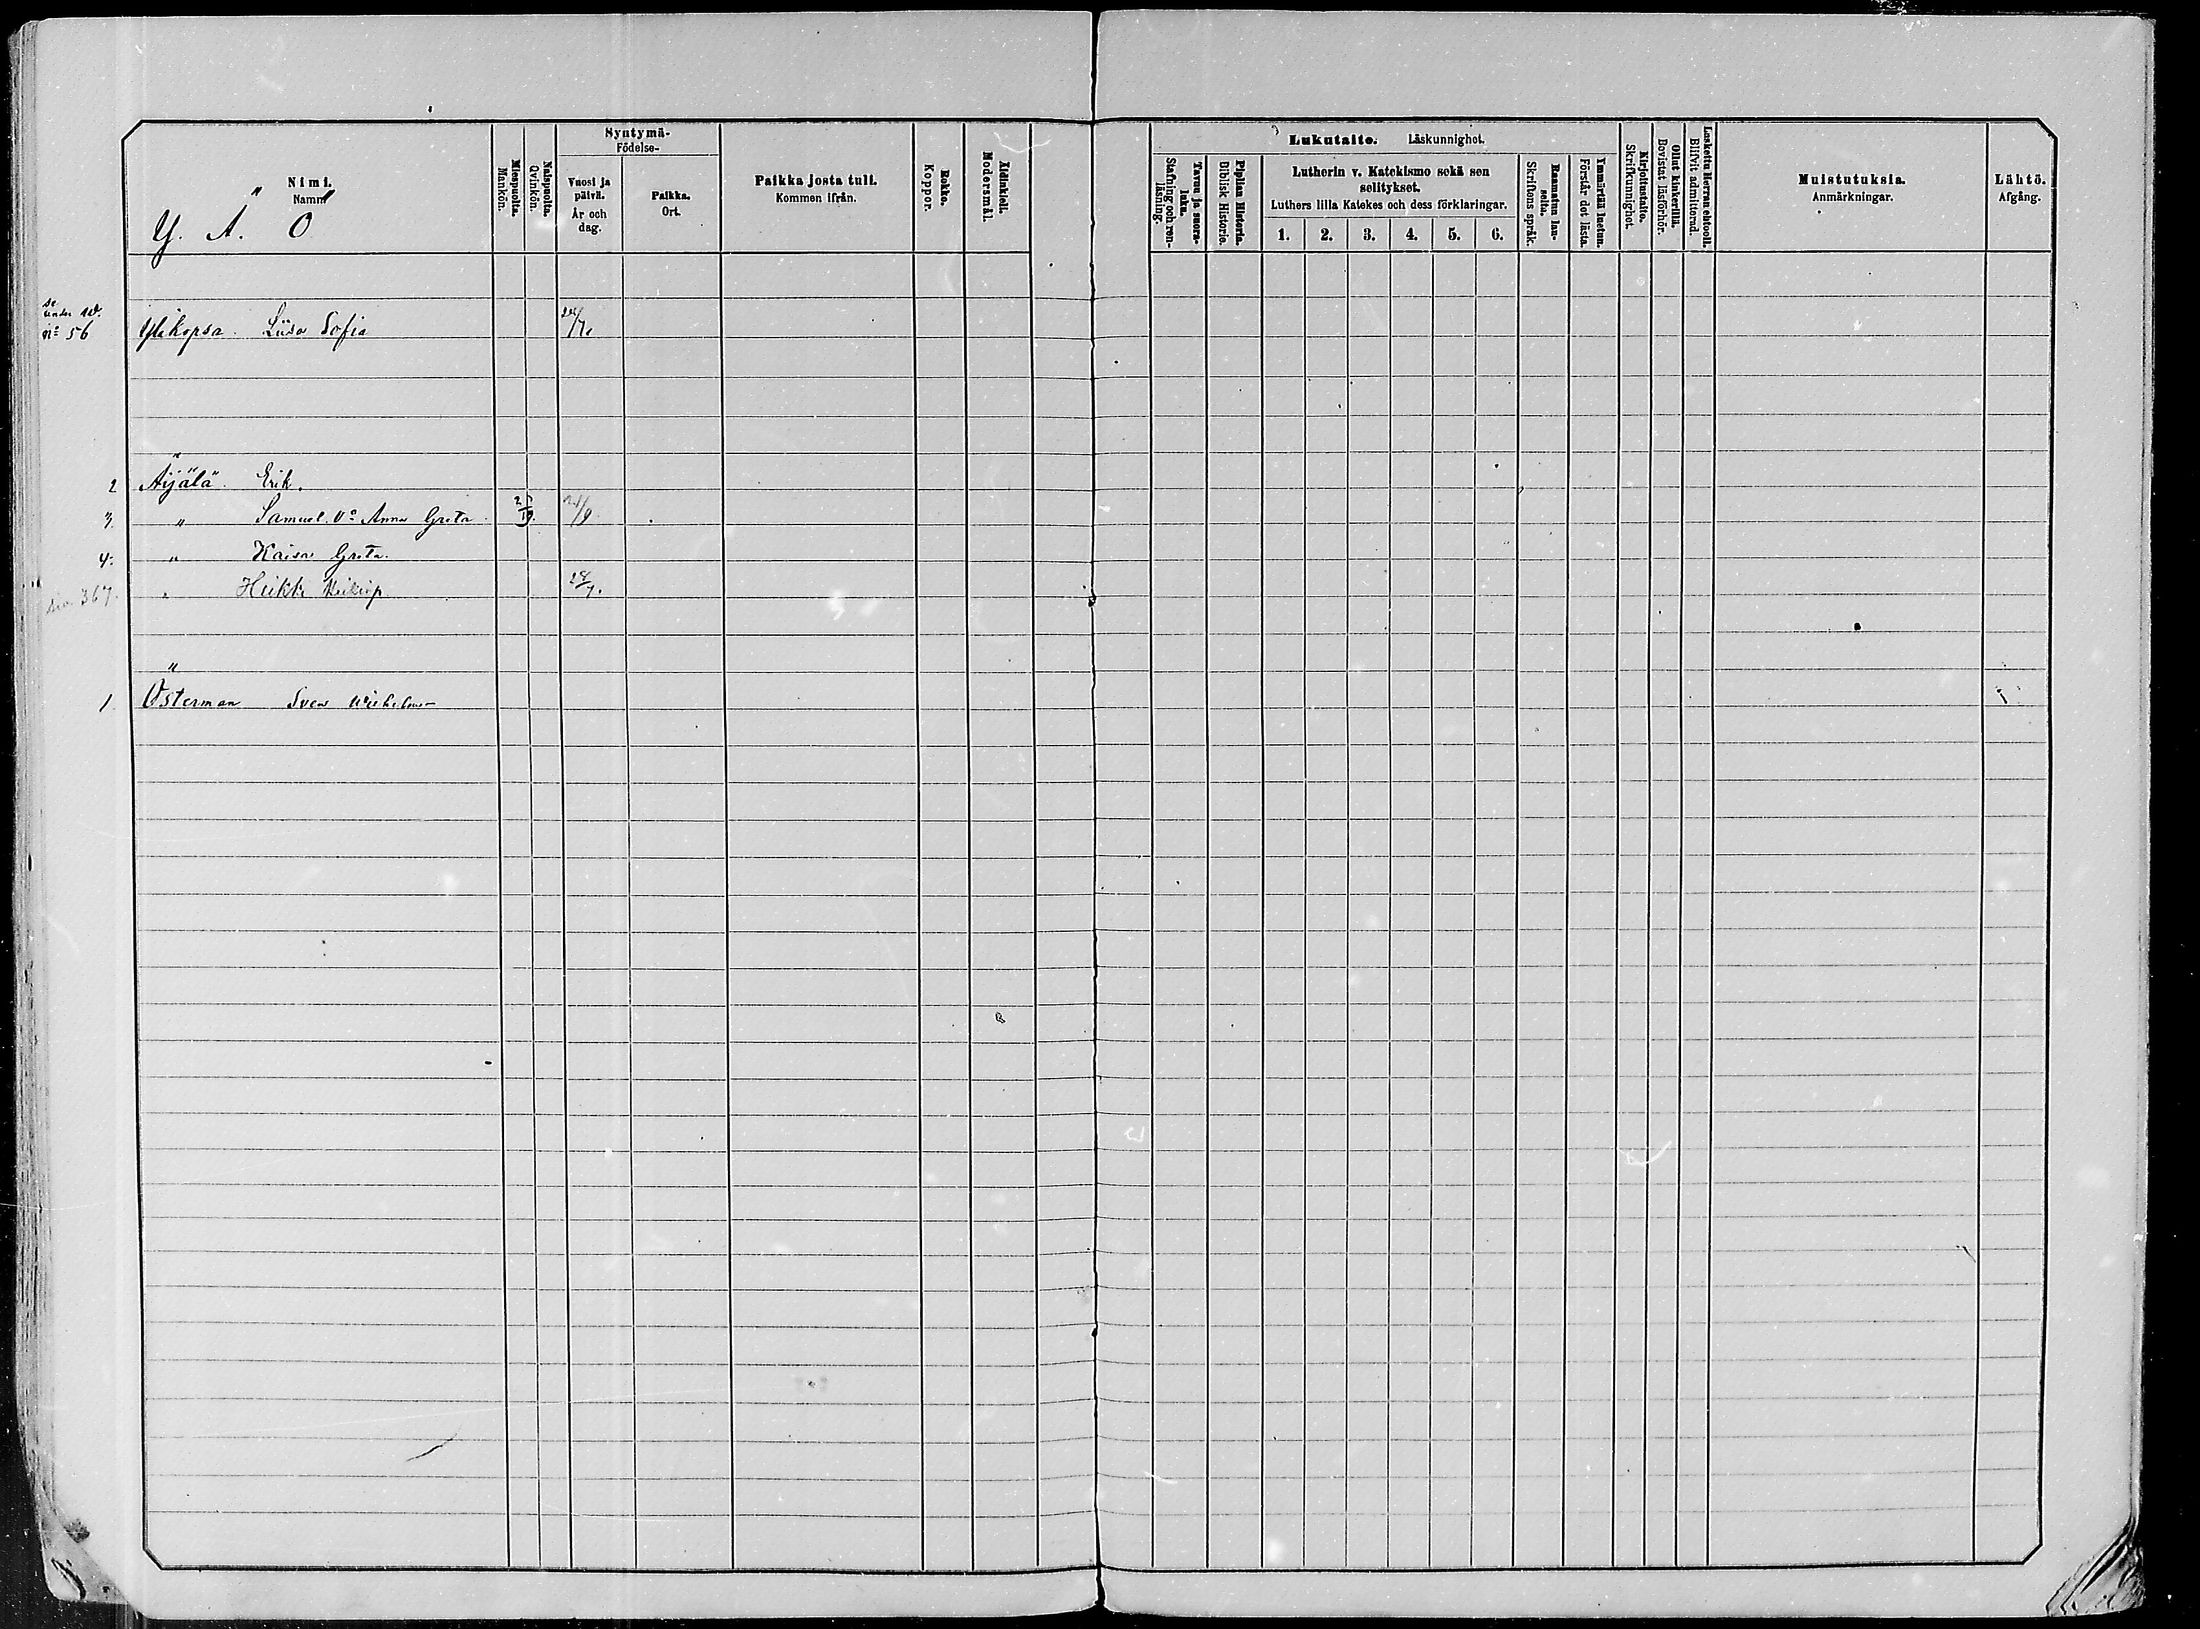 Syntymä-
Födelse-
Nimi.
Namn
Y. Ä. Ö
Miespuolta.
Mankön.
Naispuolta.
Qvinkön.
Vuosi ja päivä.
År och dag.
Paikka.
Ort.
Paikka josta tuli.
Kommen ifrån.
Rokko.
Koppor.
Äidinkieli.
Modersmål.
Lukutaito. Läskunnighet.
Tavuu ja suora-luku.
Stafning och ren-läsning.
Piplian Historia.
Biblisk Historie.
Lutherin v. Katekismo sekä sen selitykset.
Luthers lilla Katekes och dess förklaringar.
1. 2. 3. 4. 5. 6.
Raamatun lau-seita.
Skriftens språk.
Ymmärtää luetun.
Förstår det lästa.
Kirjoitustaito.
Skrifkunnighet.
Ollut kinkerillä.
Bevistat läsförhör.
Laskettu Herran ehtooll.
Blifvit admitterad.
Muistutuksia.
Anmärkningar.
Lähtö.
Afgång.
se under W.
n:o 56 Ylikopsa. Liisa Sofia
2 Äijälä Erik.
3. " Samuel. Anna Greta 21/9
4. " Kaisa Greta.
367. " Heikki 28/7.
1. Österman Sven Wilhelm